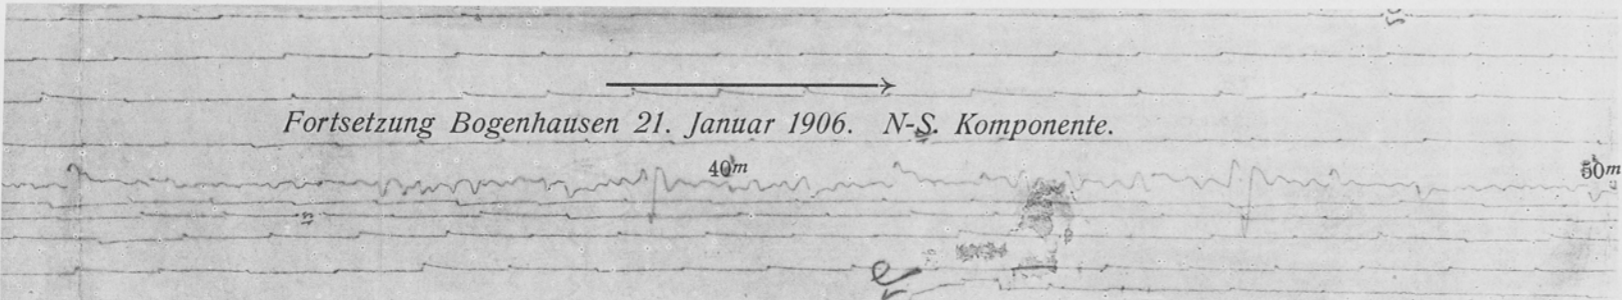 Fortsetzung Bogenhausen 21. Januar 1906. N-S. Komponente.
40m
50m